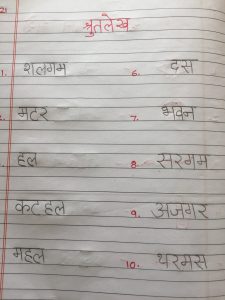 21
श्रुतलेख
1. शलगम 6. दस
2. मटर 7. भवन
हल 8. सरगम
कटहल 9. अजगर
महल 10. थरमस